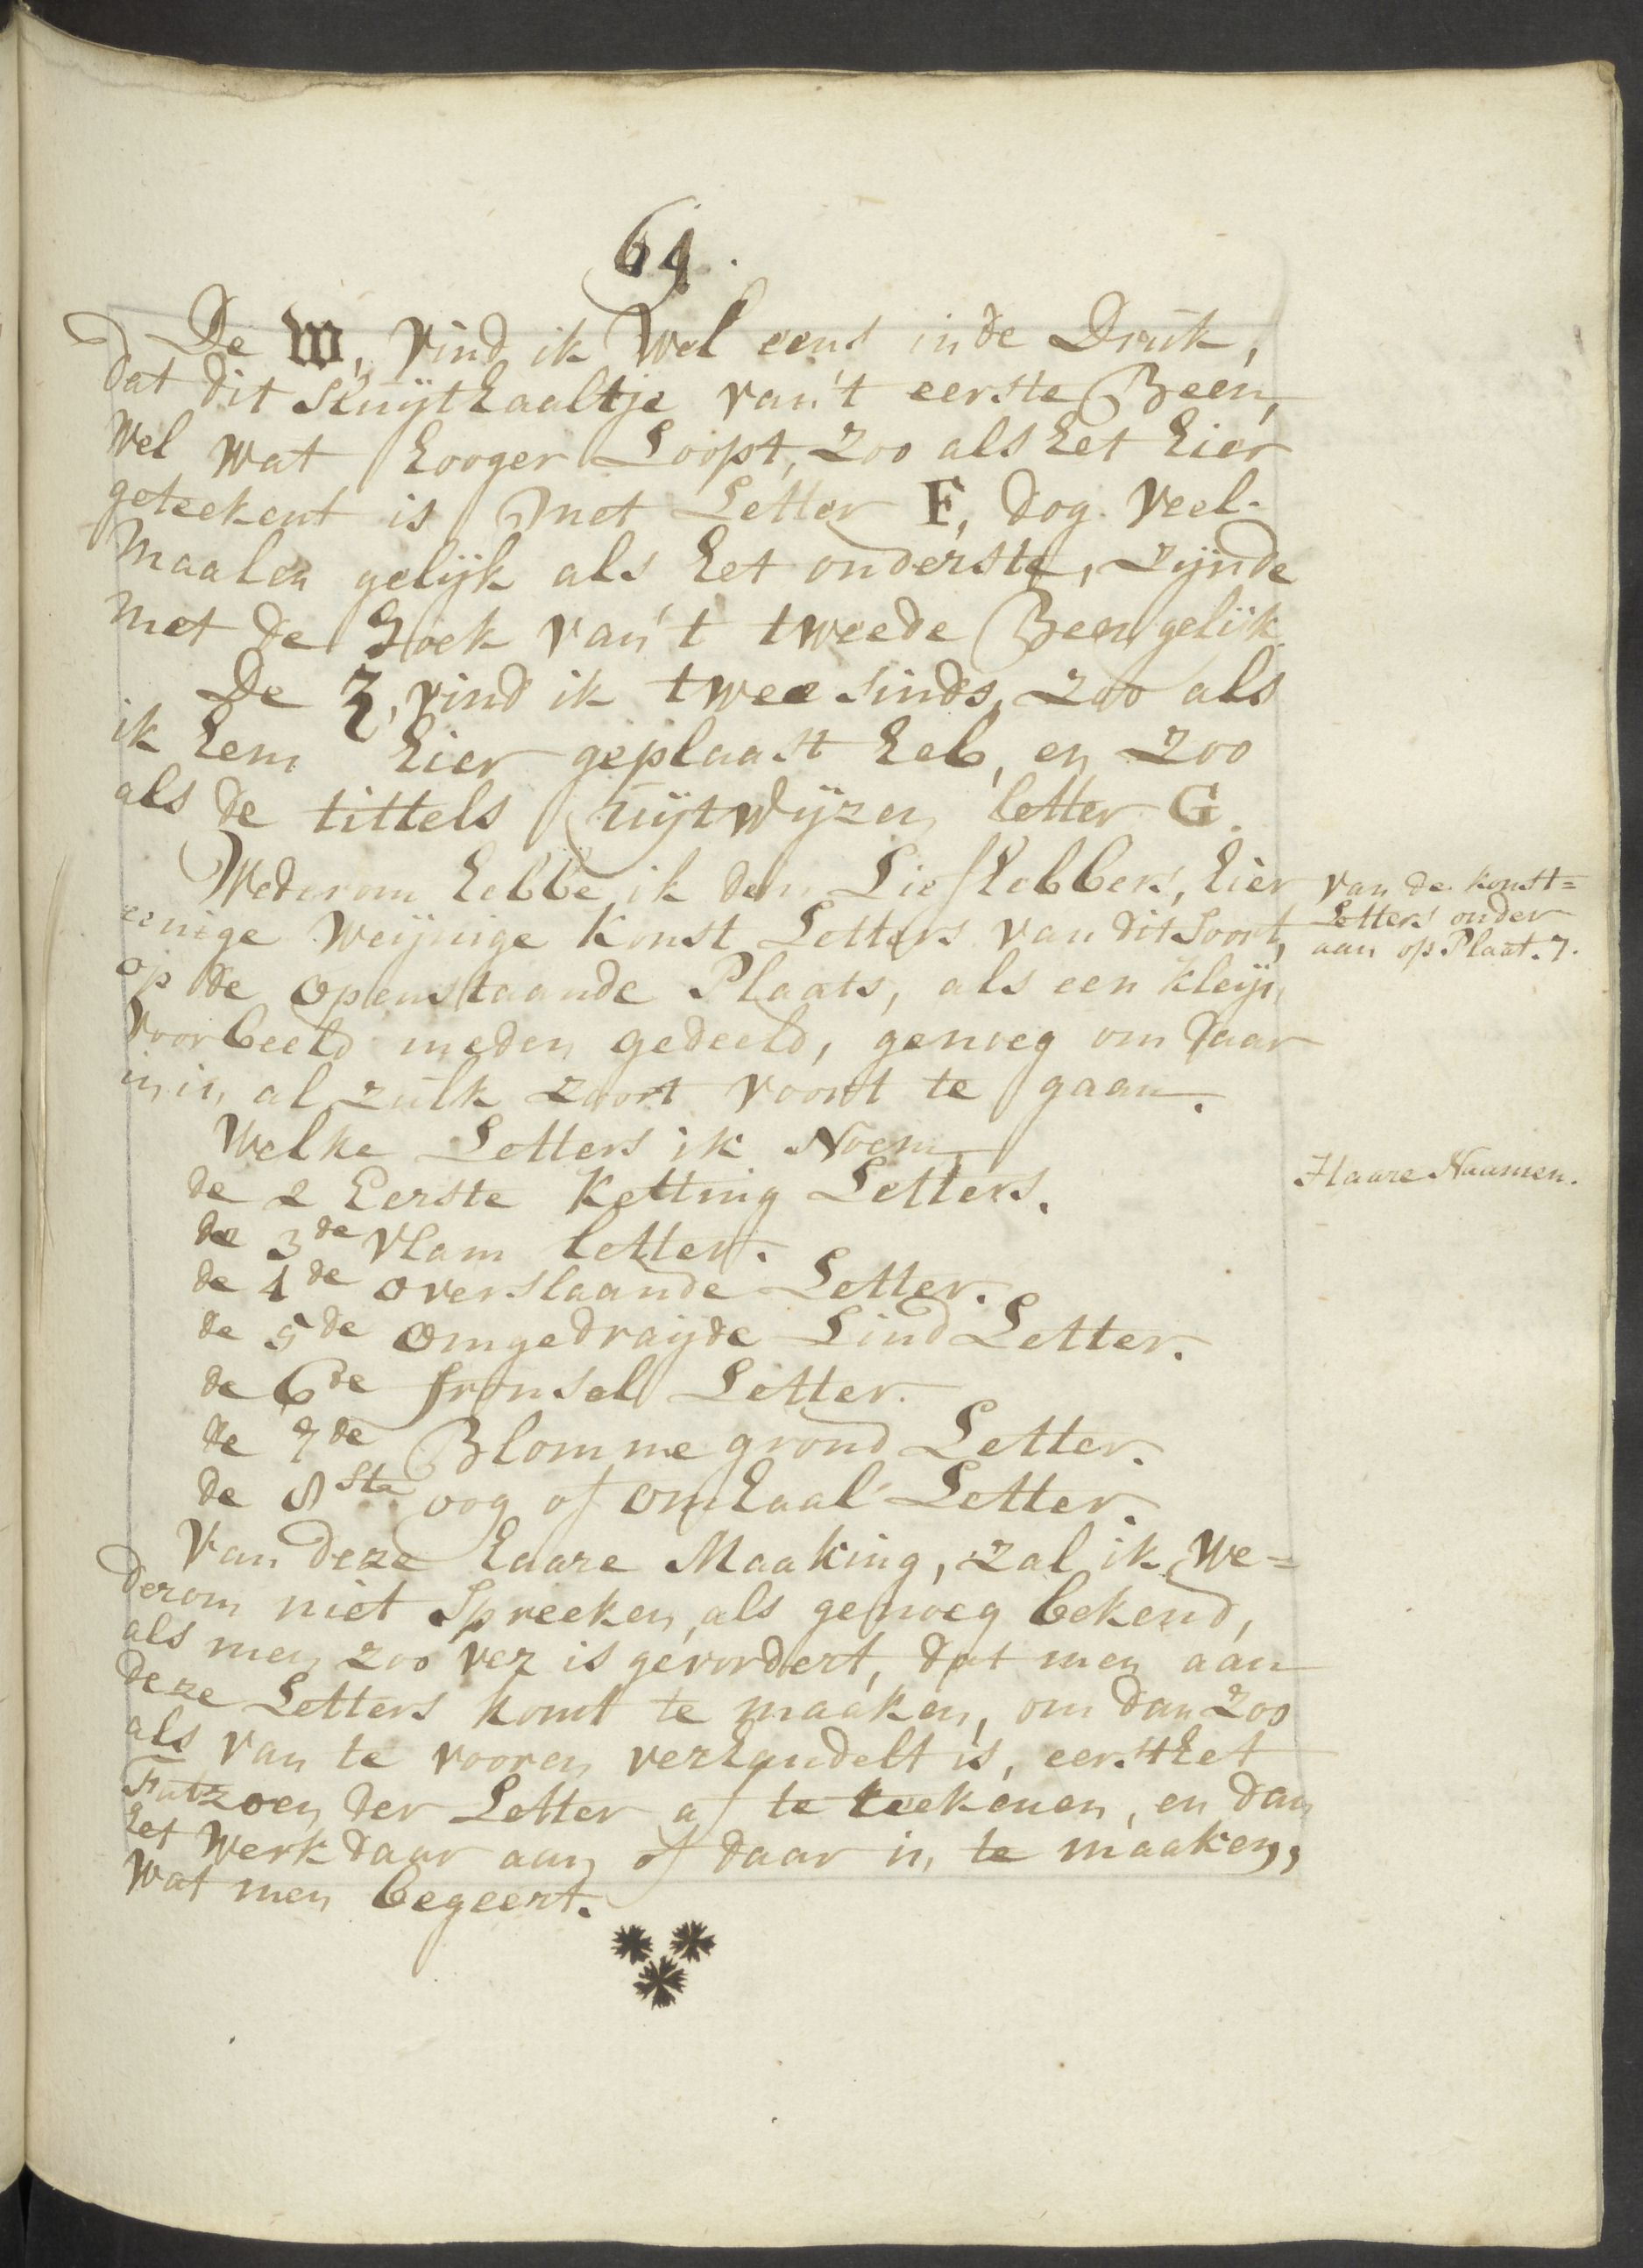 69.
De W, vind ik wel eens inde Druk,
dat dit sluijthaaltje van't eerste Been,
wel wat hooger Loopt, zoo als het hier
geteekent is met Letter F, dog veel-
maalen gelijk als het onderste, zijnde
met de Hoek van't tweede Been gelijk.
De Z, vind ik twee sinds, zoo als
ik hem hier geplaast heb, en zoo
als de tittels uijtwijzen letter G.
Wederom hebbe ik den Liefhebbers, hier
eenige weijnige konst Letters van dit soort,
op de openstaande Plaats, als een kleijn
voorbeeld meden gedeeld, genoeg om daar
in, al zulk zoort voort te gaan.
van de konst=
Letters onder
aan op Plaat. 7.
Welke Letters ik Noem
Haare Naamen.
de 2 Eerste Ketting Letters.
de 3de vlam letter.
de 4de overslaande Letter.
de 5de omgedraijde Lind Letter.
de 6de fronsel Letter.
de 7de Blomme grond Letter.
de 8ste oog of omhaal Letter.
Van deze haare Maaking, zal ik we=
derom niet Spreeken, als genoeg bekend,
als men zoo ver is gevordert, dat men aan
deze Letters komt te maaken, om dan zoo
als van te vooren verhandelt is, eerst het
Fatzoen der Letter af te teekenen, en dan
het werk daar aan of daar in te maaken,
wat men begeert.